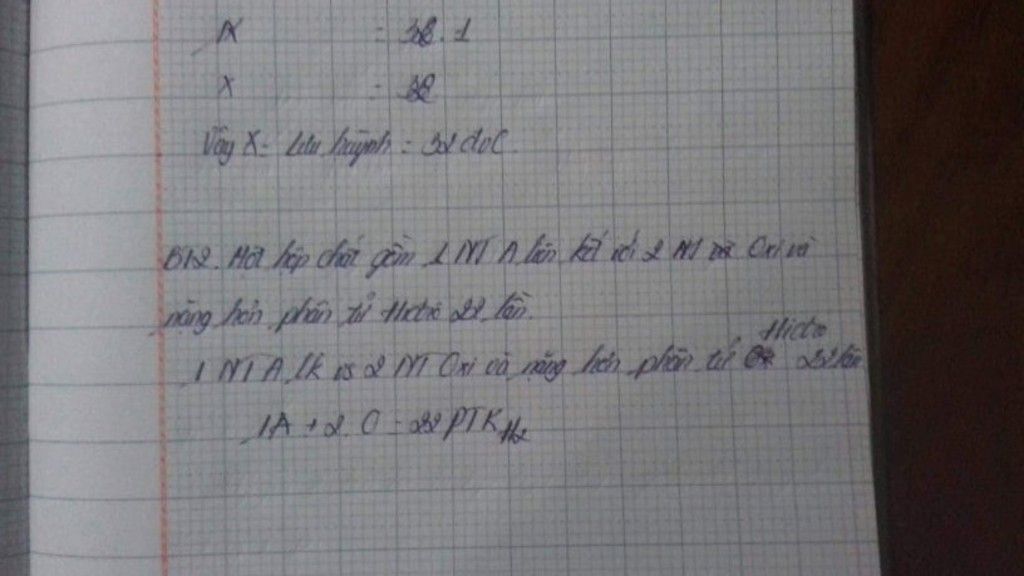 1X = 32.1
X = 32
Vậy X = Lưu huỳnh = 32 đvC.
BT2. Một hợp chất gồm 1 NT A liên kết với 2 NT Oxi và
nặng hơn phân tử Hiđrô 22 lần.
1 NT A lk vs 2 NT Oxi và nặng hơn phân tử Hiđrô 22 lần
1A + 2.O = 22 PTK H2